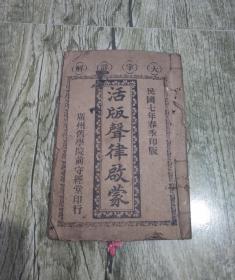 大字註解
民國七年春季印版
活版聲律啟蒙
廣州舊學院前守經堂印行